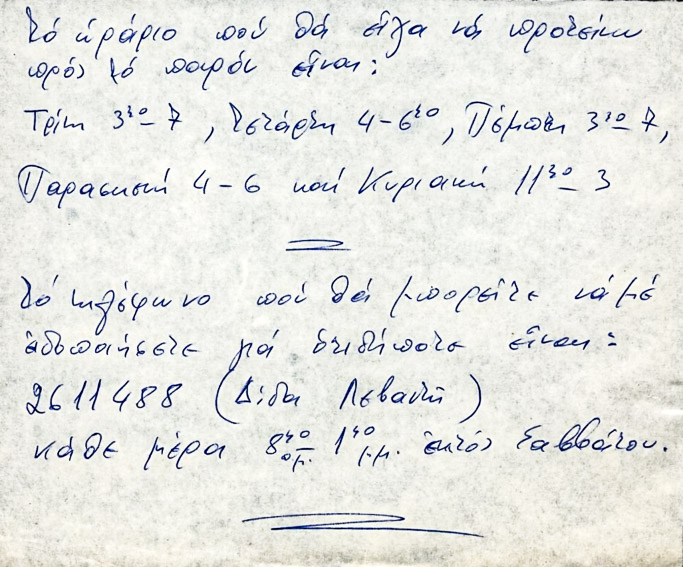 Τό ὡράριο πού θά εἶχα νά προτείνω
πρός τό παρόν εἶναι:
Τρίτη 3³⁰ – 7, Τετάρτη 4 – 6³⁰, Πέμπτη 3³⁰ – 7,
Παρασκευή 4 – 6 καί Κυριακή 11³⁰ – 3
Τό τηλέφωνο πού θά μπορεῖτε νά μέ
εἰδοποιήσετε γιά ὁτιδήποτε εἶναι:
2611488 (Δίδα Λεβαντή)
κάθε μέρα 8³⁰ π.μ. – 1³⁰ μ.μ. ἐκτός Σαββάτου.